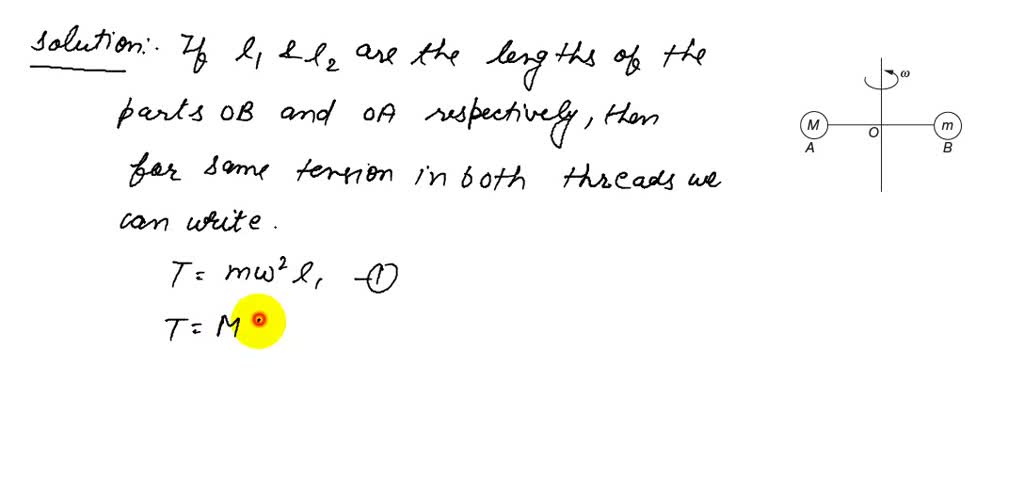 Solution:. If l₁ & l₂ are the lengths of the
parts OB and OA respectively, then
for same tension in both threads we
can write.
T = mω² l₁ —①
T = M
ω
M
O
m
A
B